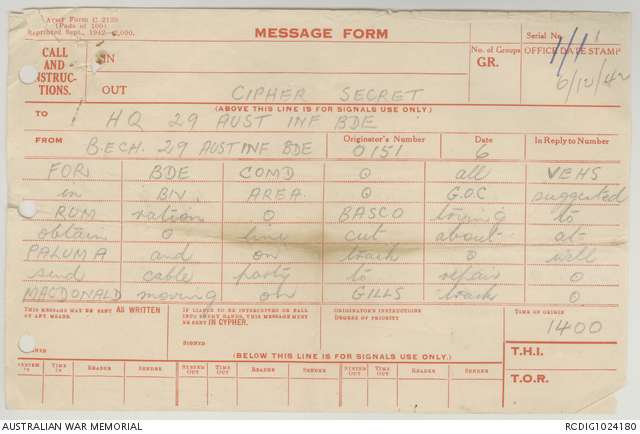 Army Form C.2128
(Pads of 100)
Reprinted Sept., 1942
MESSAGE FORM
Serial No.
1/1
CALL
AND
INSTRUC-
TIONS.
IN
OUT
CIPHER SECRET
No. of Groups
GR.
OFFICE DATE STAMP
6/12/42
(ABOVE THIS LINE IS FOR SIGNALS USE ONLY.)
TO HQ 29 AUST INF BDE
FROM B.ECH. 29 AUST INF BDE
Originator's Number 0151
Date 6
In Reply to Number
FOR BDE COMD O all VEHS
in BIV. AREA O G.O.C suggested
RUM ration O BASCO trying to
obtain O line cut about at
PALUMA and on track O will
send cable party to repair O
MACDONALD moving on GILLS track O
THIS MESSAGE MAY BE SENT AS WRITTEN
BY ANY MEANS.
IF LIABLE TO BE INTERCEPTED OR FALL
INTO ENEMY HANDS, THIS MESSAGE MUST
BE SENT IN CIPHER.
ORIGINATOR'S INSTRUCTIONS
DEGREE OF PRIORITY
TIME OF ORIGIN
1400
SIGNED
(BELOW THIS LINE IS FOR SIGNALS USE ONLY.)
T.H.I.
T.O.R.
SYSTEM IN TIME IN READER SENDER SYSTEM OUT TIME OUT READER SENDER SYSTEM OUT TIME OUT READER SENDER
AUSTRALIAN WAR MEMORIAL
RCDIG1024180